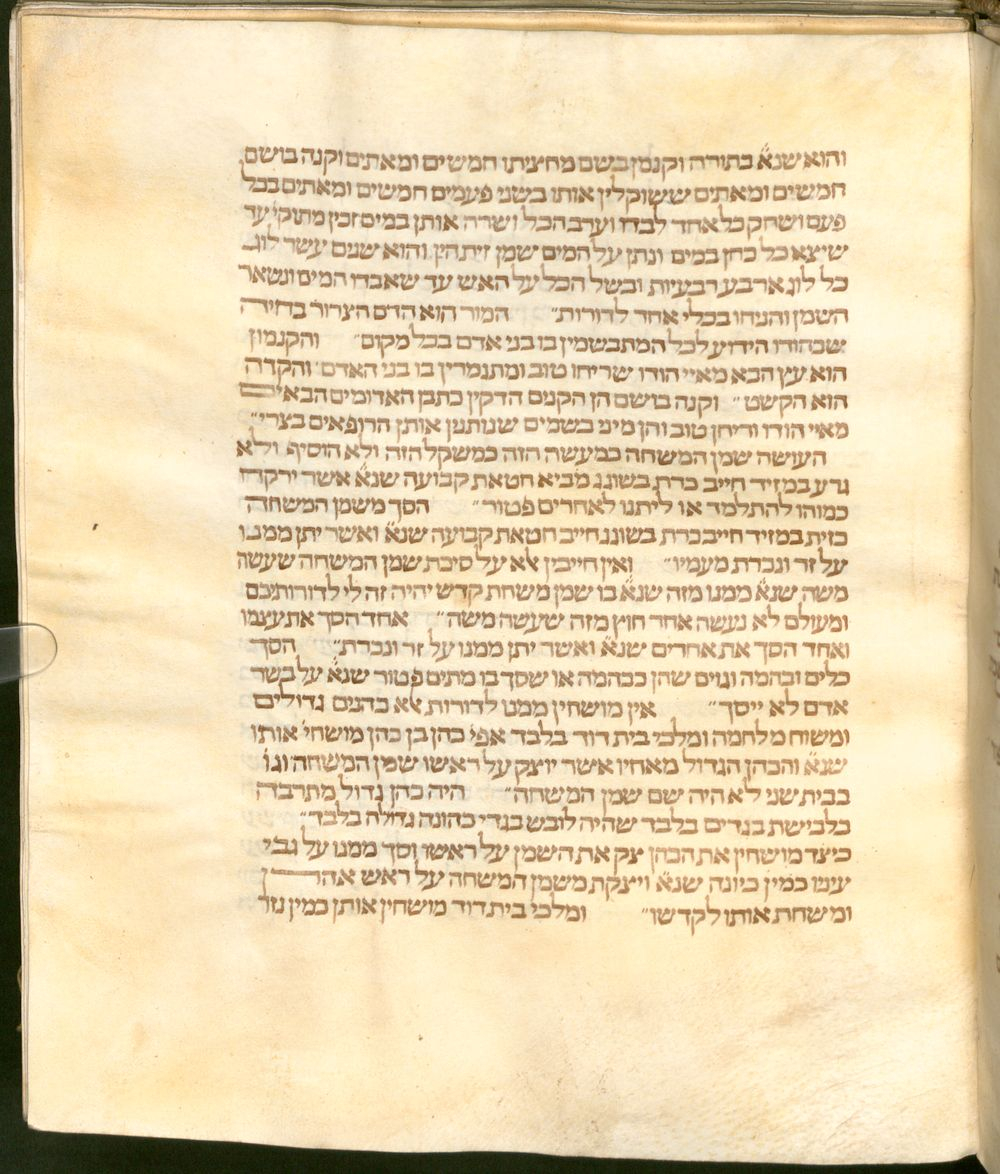 והוא שנא׳ בתורה וקנמן בשם מחציתו חמשים ומאתים וקנה בושם
חמשים ומאתים ששוקלין אותו בשני פעמים חמשים ומאתים בכל
פעם ושחק כל אחד לבדו וערב הכל ושרה אותן במים זכין מתוקי׳ עד
שיצא כל כחן במים ונתן על המים שמן זית הין והוא שנים עשר לוג
כל לוג ארבע רבעיות ובשל הכל על האש עד שאבדו המים ונשאר
השמן והניחו בכלי אחד לדורות״ המור הוא הדם הצרור בחיה
שבהודו הידוע לכל המתבשמין בו בני אדם בכל מקום״ והקנמון
הוא עץ הבא מאיי הודו שריחו טוב ומתגמרין בו בני האדם והקדה
הוא הקשט״ וקנה בושם הן הקנים הדקין כתבן האדומים הבאים
מאיי הודו וריחן טוב והן מיני בשמים שנותנין אותן הרופאים בצרי״
העושה שמן המשחה כמעשה הזה כמשקל הזה ולא הוסיף ולא
גרע במזיד חייב כרת בשוגג מביא חטאת קבועה שנא׳ אשר ירקח
כמוהו להתלמד או ליתנו לאחרים פטור״ הסך משמן המשחה
כזית במזיד חייב כרת בשוגג חייב חטאת קבועה שנא׳ ואשר יתן ממנו
על זר ונכרת מעמיו״ ואין חייבין אלא על סיכת שמן המשחה שעשה
משה שנא׳ ממנו מזה שנא׳ בו שמן משחת קדש יהיה זה לי לדורותיכם
ומעולם לא נעשה אחר חוץ מזה שעשה משה״ אחד הסך את עצמו
ואחד הסך את אחרים שנא׳ ואשר יתן ממנו על זר ונכרת״ הסך
כלים ובהמה וגוים שהן כבהמה או שסך בו מתים פטור שנא׳ על בשר
אדם לא ייסך״ אין מושחין ממנו לדורות אלא כהנים גדולים
ומשוח מלחמה ומלכי בית דוד בלבד אפי׳ כהן בן כהן מושחי׳ אותו
שנא׳ והכהן הגדול מאחיו אשר יוצק על ראשו שמן המשחה וגו׳
בבית שני לא היה שם שמן המשחה״ היה כהן גדול מתרבה
בלבישת בגדים בלבד שהיה לובש בגדי כהונה גדולה בלבד״
כיצד מושחין את הכהן צק את השמן על ראשו וסך ממנו על גבי
עיניו כמין כיונה שנא׳ ויצקת משמן המשחה על ראש אהרן
ומשחת אותו לקדשו״ ומלכי בית דוד מושחין אותן כמין נזר